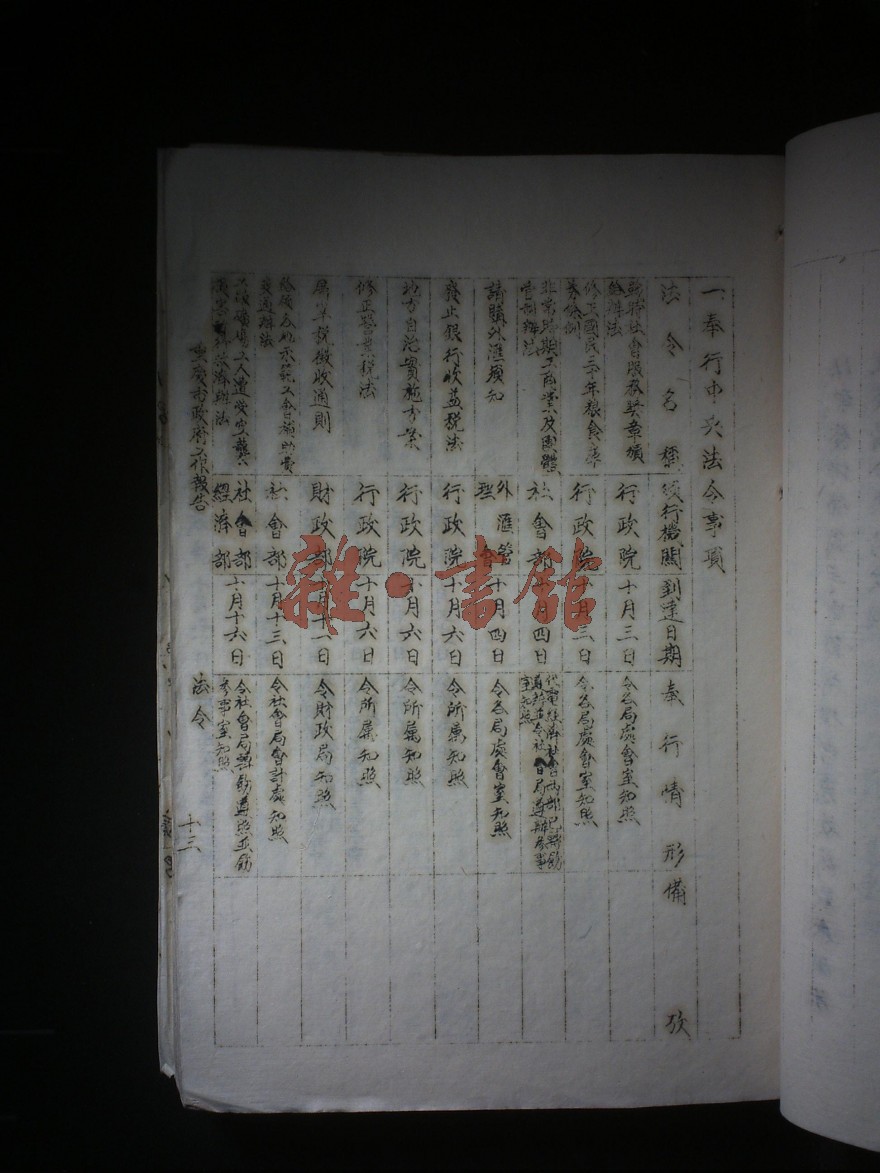 一奉行中央法令事項
法令名稱 頒行機關 到達日期 奉行情形 備攷
社會服務獎章頒
給辦法 行政院 十月三日 令各局處會室知照
修正國民三十年糧食庫
券條例 行政院 十月三日 令各局處會室知照
非常時期工商業及團體
管制辦法 社會部 十月四日 代電經濟社會兩部已轉飭
遵辦並令社會局遵辦參事
室知照
請購外匯須知 外匯管
理會 十月四日 令各局處會室知照
廢止銀行收益稅法 行政院 十月六日 令所屬知照
地方自治實施方案 行政院 十月六日 令所屬知照
修正營業稅法 行政院 十月六日 令所屬知照
屠宰稅徵收通則 財政部 十月十一日 令財政局知照
工會補助費
支通辦法 社會部 十月十三日 令社會局會計處知照
工礦場工人遭受空襲
損害救濟辦法 社會部
經濟部 十月十六日 令社會局轉飭遵照並飭
參事室知照
重慶市政府工作報告 法令 十三
雜·書館